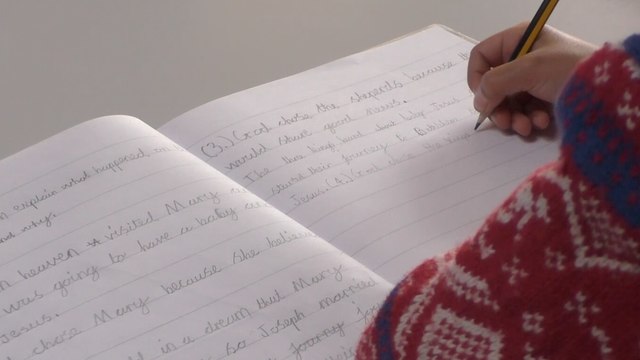 explain what happened on
and why.
heaven visited Mary
was going to have a baby
Jesus.
chose Mary because she
in a dream that Mary
so Joseph married
journey
(3.) God chose the sheperds because
would share good news.
The three kings heard about
started their journey to
Jesus. (4.) God chose the